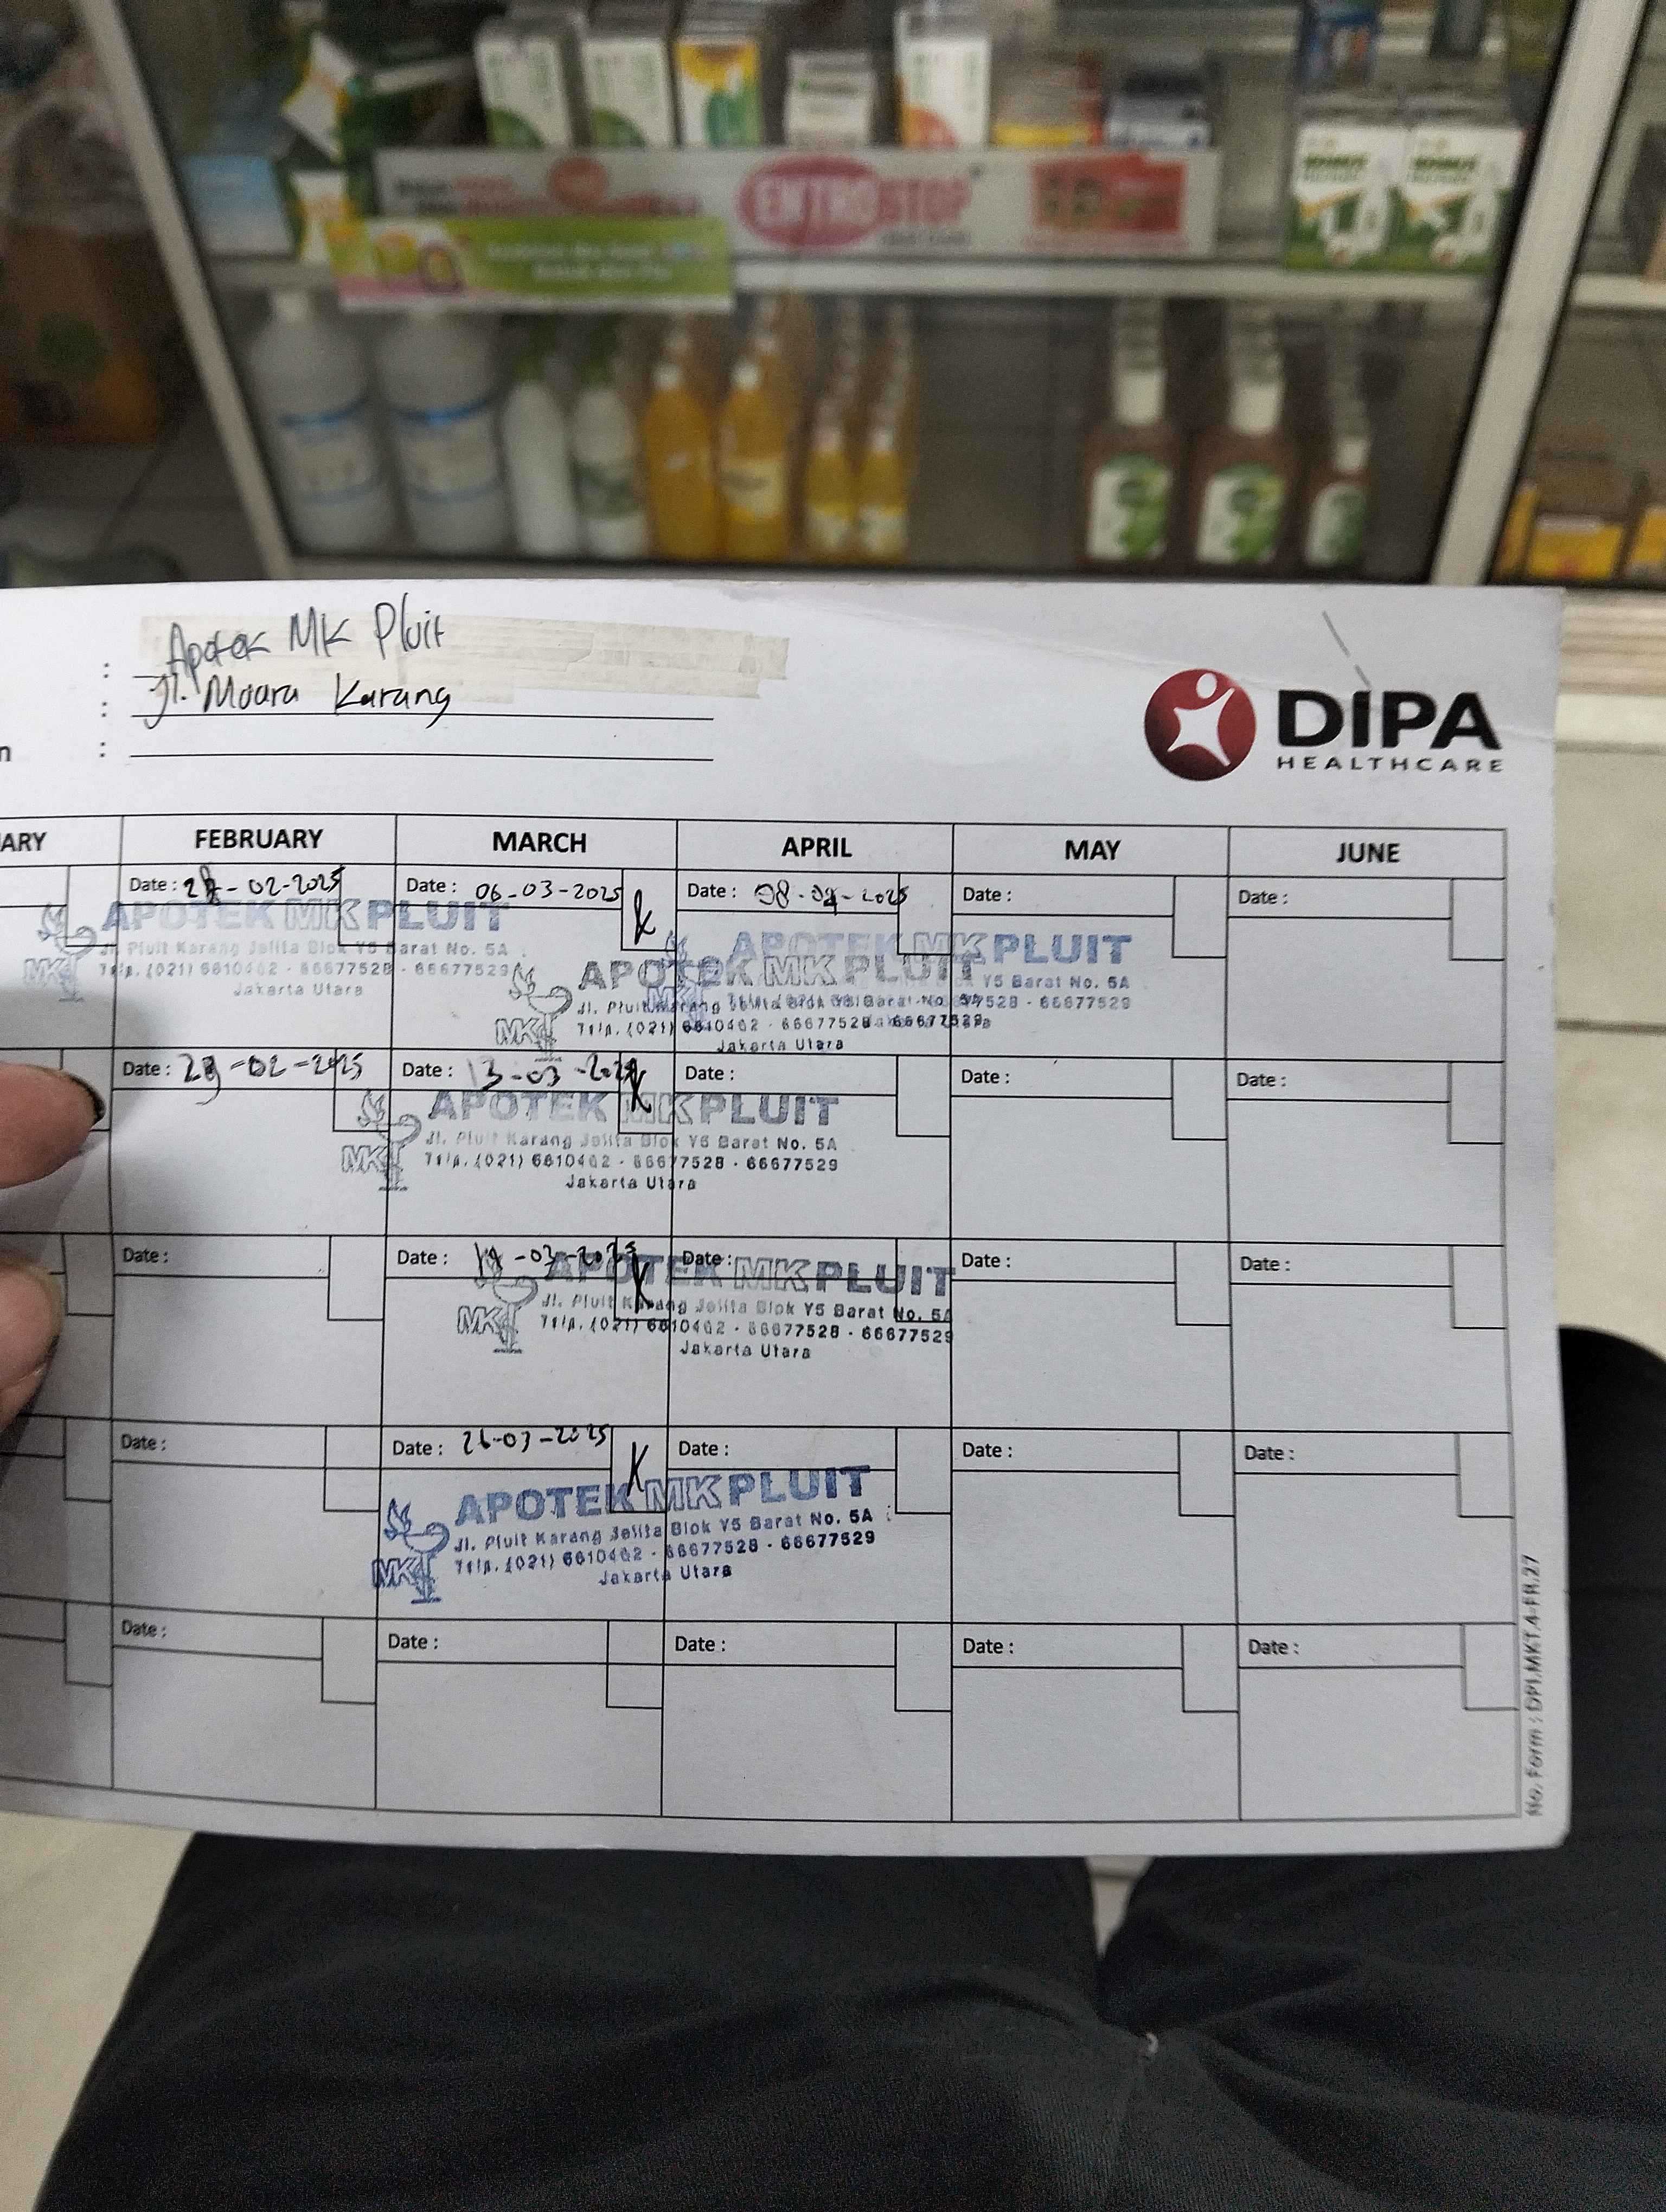 ENTROSTOP
: Apotek MK Pluit
: Jl. Muara Karang
n :
DIPA
HEALTHCARE
ARY FEBRUARY MARCH APRIL MAY JUNE
Date : -02-2025 Date : 06-03-2025 Date : 08-04-2025 Date : Date :
APOTEK MK PLUIT
Jl. Pluit Karang Jelita Blok Y5 Barat No. 5A
Telp. (021) 6610462 - 66677528 - 66677529
Jakarta Utara
MK
APOTEK MK PLUIT
Y5 Barat No. 5A
- 66677529
APOTEK MK PLUIT
Jl. Pluit Karang Jelita Blok Y5 Barat No. 5A
Telp. (021) 6610462 - 66677528 - 66677529
Jakarta Utara
MK
Date : -02-2025 Date : 13-03-2025 Date : Date : Date :
APOTEK MK PLUIT
Jl. Pluit Karang Jelita Blok Y5 Barat No. 5A
Telp. (021) 6610462 - 66677528 - 66677529
Jakarta Utara
MK
Date : Date : -03-2025 Date : Date : Date :
APOTEK MK PLUIT
Jl. Pluit Karang Jelita Blok Y5 Barat No. 5A
Telp. (021) 6610462 - 66677528 - 66677529
Jakarta Utara
MK
Date : Date : 26-03-2025 Date : Date : Date :
APOTEK MK PLUIT
Jl. Pluit Karang Jelita Blok Y5 Barat No. 5A
Telp. (021) 6610462 - 66677528 - 66677529
Jakarta Utara
MK
Date : Date : Date : Date : Date :
No. Form : DPI.MKT.4-FR.27